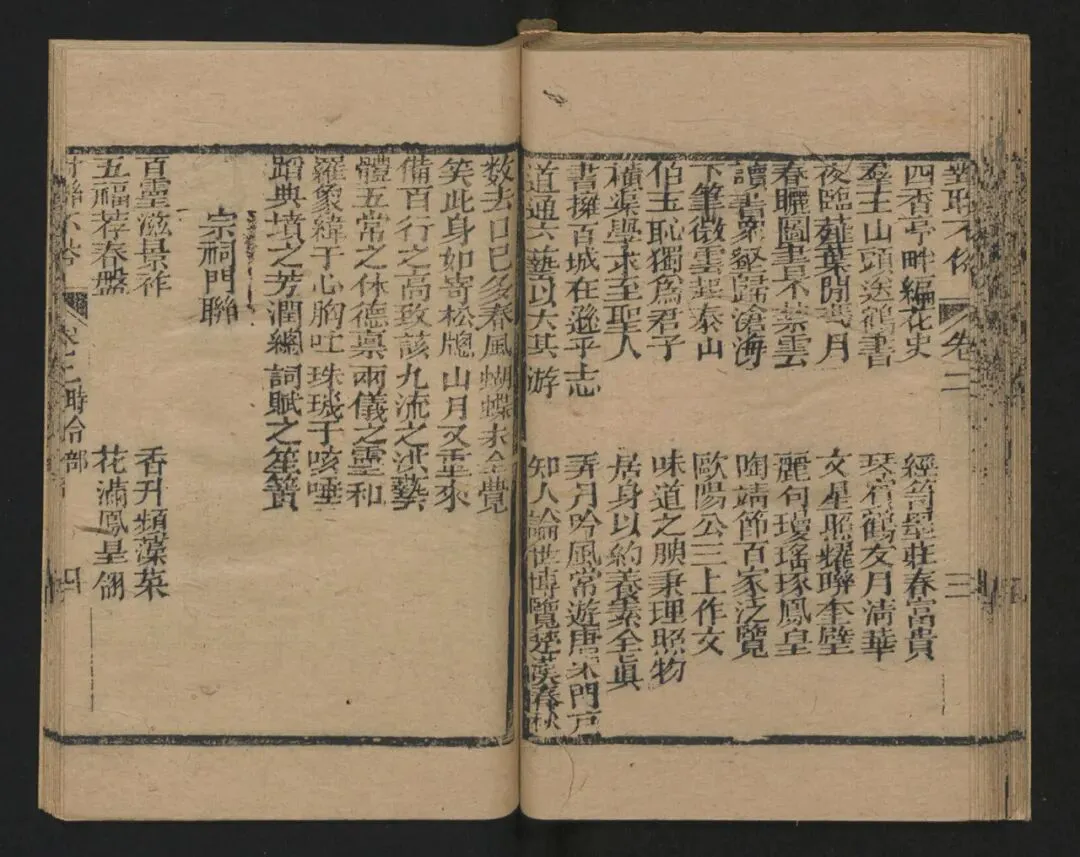 卷二 三
四香亭畔編花史 經笥墨莊春富貴
羣玉山頭送鶴書 琴賓鶴友月清華
夜臨薤葉開月 文星照耀聯奎壁
春曬圖書不禁雲 麗句瓊瑤琢鳳皇
讀書壑歸滄海 陶靖節百家泛覽
下筆微雲起泰山 歐陽公三上作文
伯玉恥獨爲君子 味道之腴秉理照物
橫渠學求至聖人 居身以約養素全眞
書擁百城在遜乎志 弄月吟風常遊唐宋門戸
道通六藝以大其游 知人論世博覽楚漢春秋
数去日已多春風蝴蝶未全覺
笑此身如寄松牕山月又重來
備百行之高致該九流之洪藝
體五常之休德禀兩儀之靈和
羅象緯于心胸吐珠璣于咳唾
蹈典墳之芳潤總詞賦之笙簧
宗祠門聯
百靈滋景祚 香升蘋藻菜
五福荐春盤 花滿鳳皇翎
卷之二時令部 四